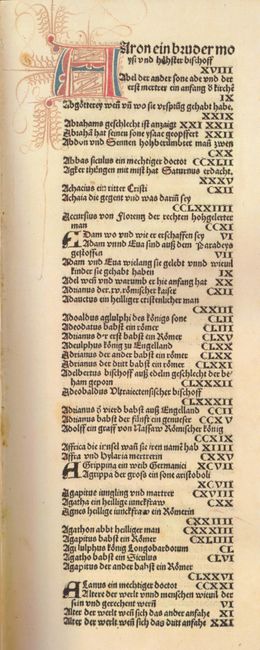 Aron ein bruder mo
ysi vnd höhster bischoff
XVIII
Abel der ander sone ade vnd der
erst mertrer ein anfang d kirche
IX
Abgötterey wen vn wo sie vrsprüg gehabt habe.
XXIX
Abrahams geschlecht ist anzaigt XXI XXII
Abrahā hat seinen sone ysaac geopffert XXII
Abdon vnd Sennen hohberümbter man zwen
XXX
Abbas siculus ein mechtiger doctor CCXLII
Agker thüngen mit mist hat Saturnus erdacht.
XXXV
Achacius ein ritter Cristi CXII
Achaia die gegent vnd was darin sey
CCLXXIIII
Accursius von Florentz der rechten hohgelerter
man CCXI
Adam wo vnd wie er erschaffen sey VI
Adam vnnd Eua sind auß dem Paradeys
gestossen VII
Adam vnd Eua wielang sie gelebt vnnd wieuil
kinder sie gehabt haben IX
Adel wen vnd warumb er hie anfang hat XX
Adrianus der xv. römischer kaiser CXII
Adauctus ein heilliger cristenlicher man
CXXIII
Adoaldus agilulphi des königs sone CLII
Adeodatus babst ein römer CLIII
Adrianus der erst babst ein Römer CLXV
Adeulphus könig zu Engelland CLXX
Adrianus der ander babst ein römer CLXX
Adrianus der dritt babst ein römer CLXXI
Adelbertus bischoff auß edeln geschlecht der be
ham geporn CLXXXII
Adeobaldus Vltraiectensischer bischoff
CLXXXII
Adrianus der vierd babst auß Engelland CCII
Adrianus babst der fünfft ein genueser CCXV
Adolff ein graff von Nassaw Römischer könig
CCXIX
Affrica die insel wan sie iren namē hab XIIII
Affra vnd hylaria mertrerin CXXV
Agrippina ein weib Germanici XCVII
Agrippa der gross ein sone aristoboli
XCVII
Agapitus iungling vnd martrer CXVIII
Agatha ein heilige iunckfraw CXX
Agnes heillige iunckfraw ein Römerin
CXXIIII
Agathon abbt heilliger man CXXXIIII
Agapitus babst ein Römer CXLIIII
Agilulphus könig Longobardorum CL
Agatho babst ein Siculus CLVI
Agapitus der ander babst ein Römer
CLXXVI
Alanus ein mechtiger doctor CCXXI
Alter der werlt vnnd menschen wieuil der
sein vnd gerechent wern VI
Alter der werlt wen sich das ander anfahe XI
Alter der werlt wen sich das dritt anfahe XXI